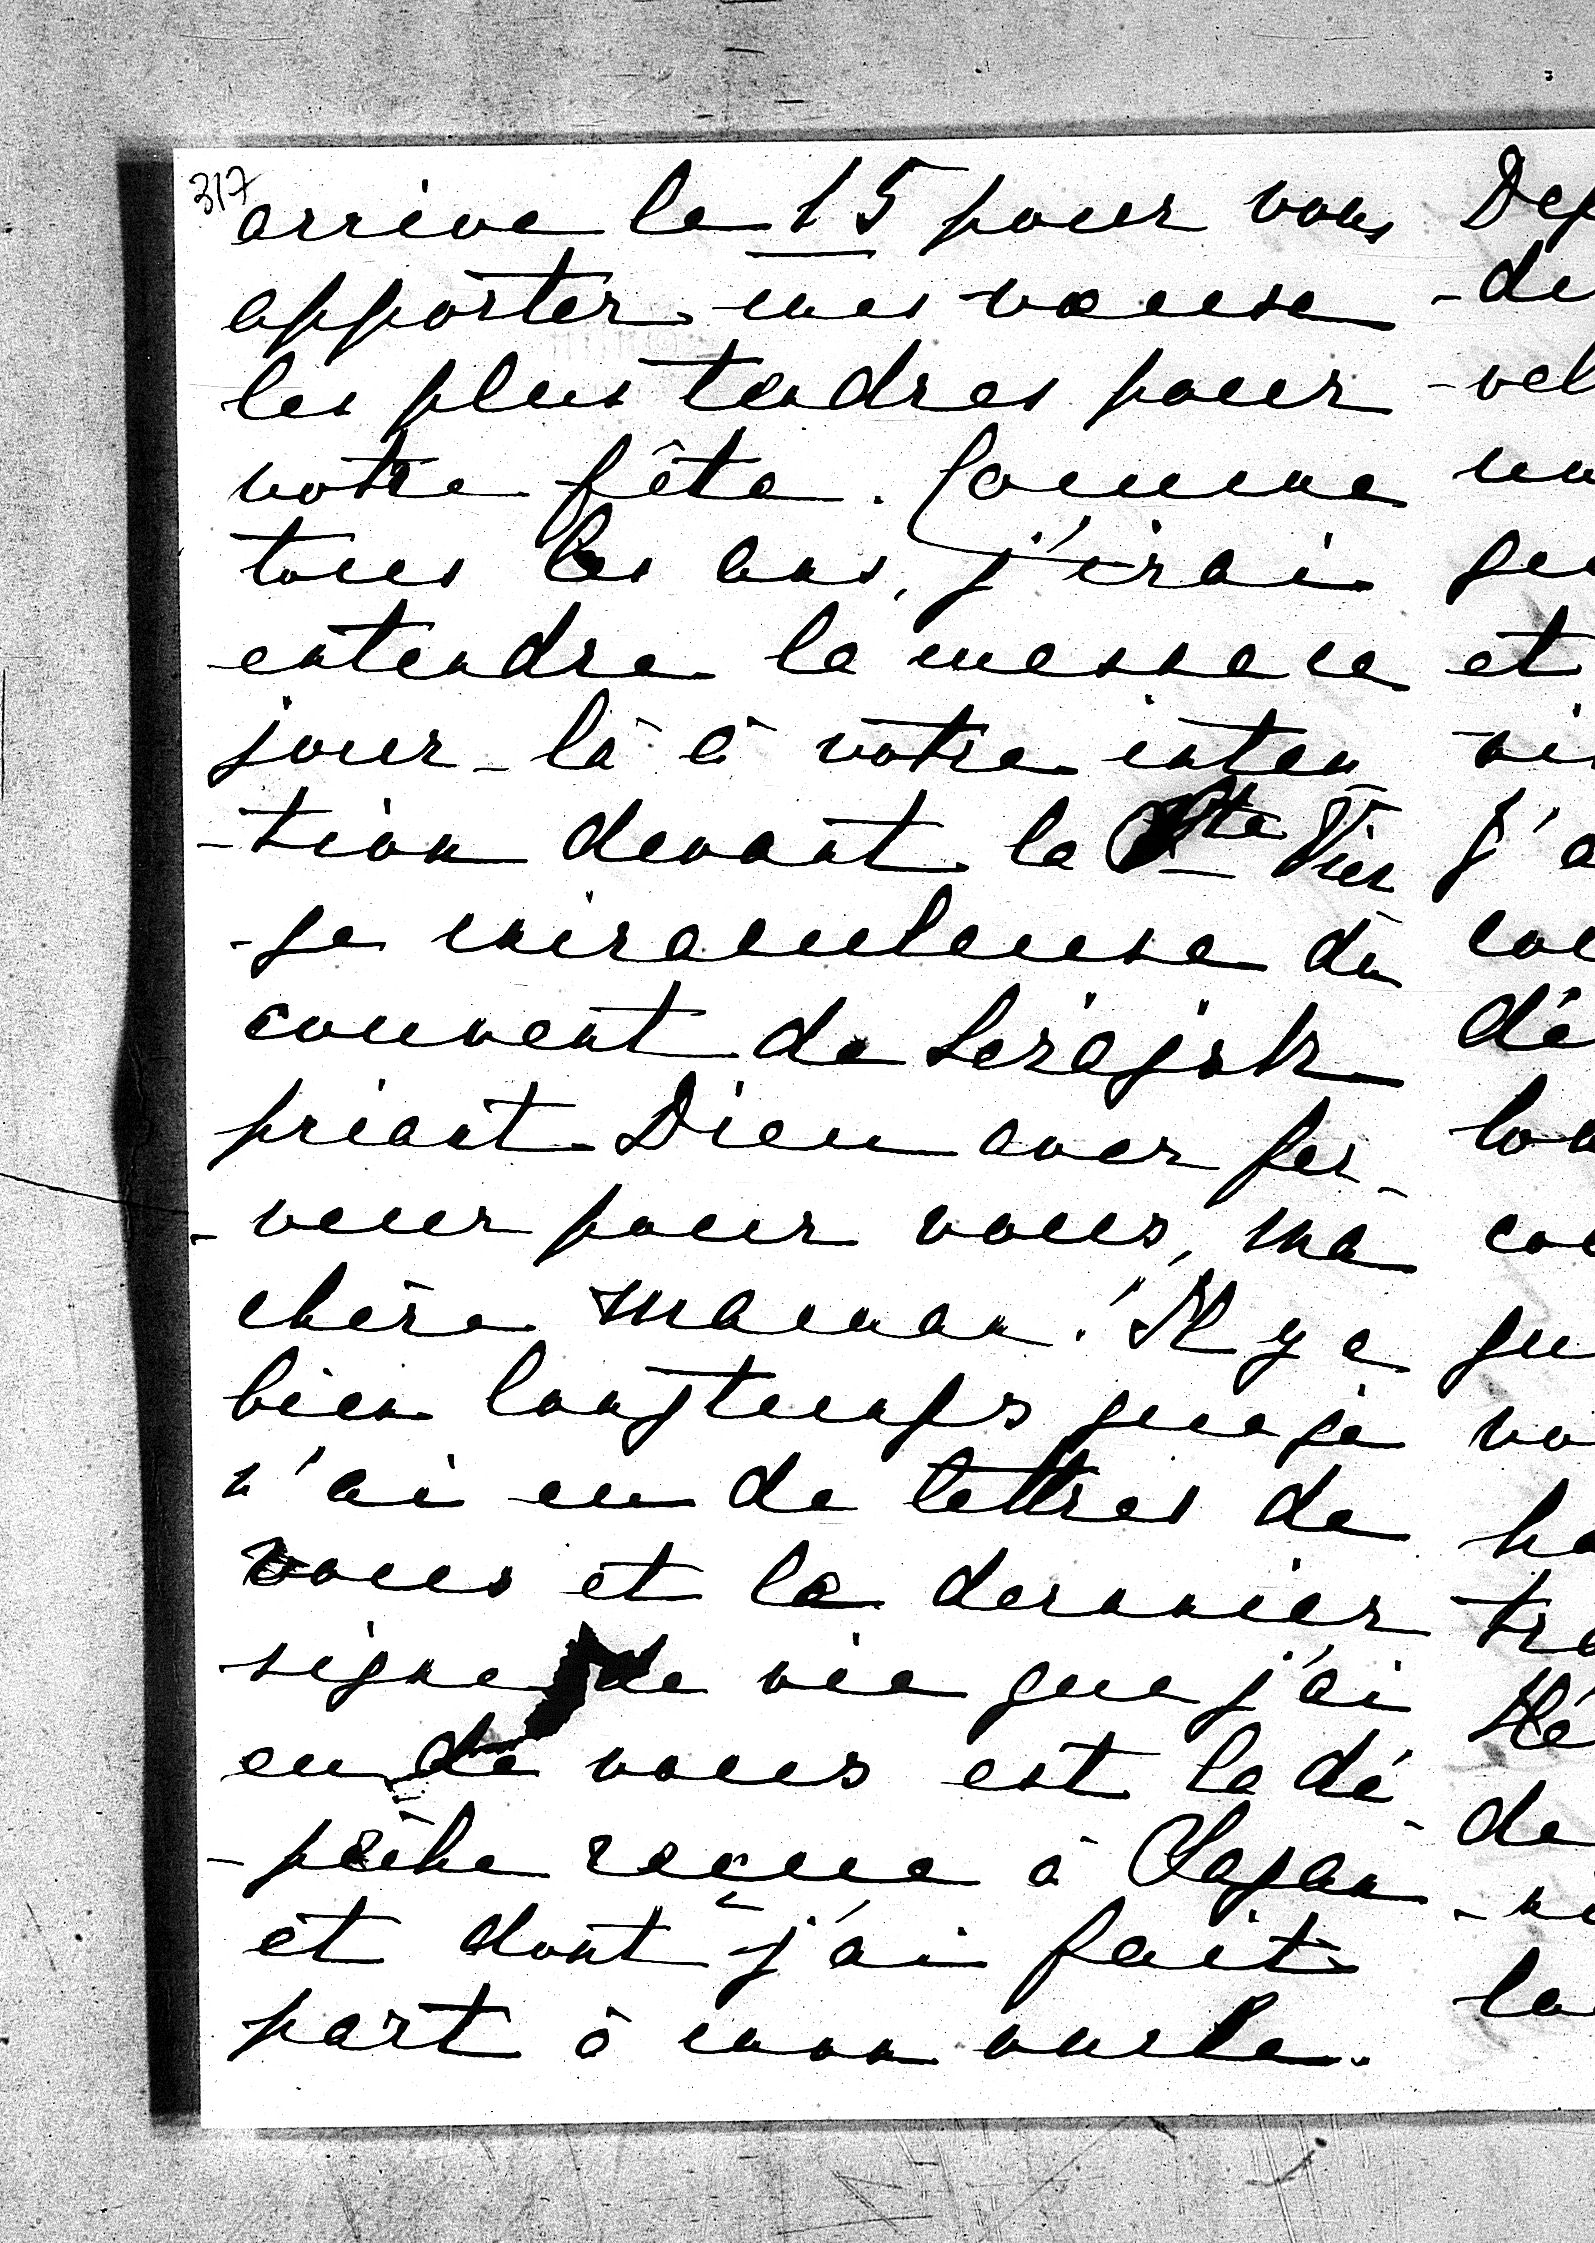 317
arrive le 15 pour vous
apporter mes voeuse
les plus tendres pour
votre fête. Comme
tous les ans, j'irai
entendre la messe ce
jour-là à votre inten
-tion devant la Ste Vier
-ge miraculeuse du
couvent de
priant Dieu avec fer-
-veur pour vous, ma
chère maman! Il y a
bien longtemps que je
n'ai eu de lettres de
vous et le dernier
signe de vie que j'ai
eu de vous est la dé-
-pêche reçue à
et dont j'ai fait
part à mon oncle.
Dep
-de
-vel
et
J'a
dé
de
la